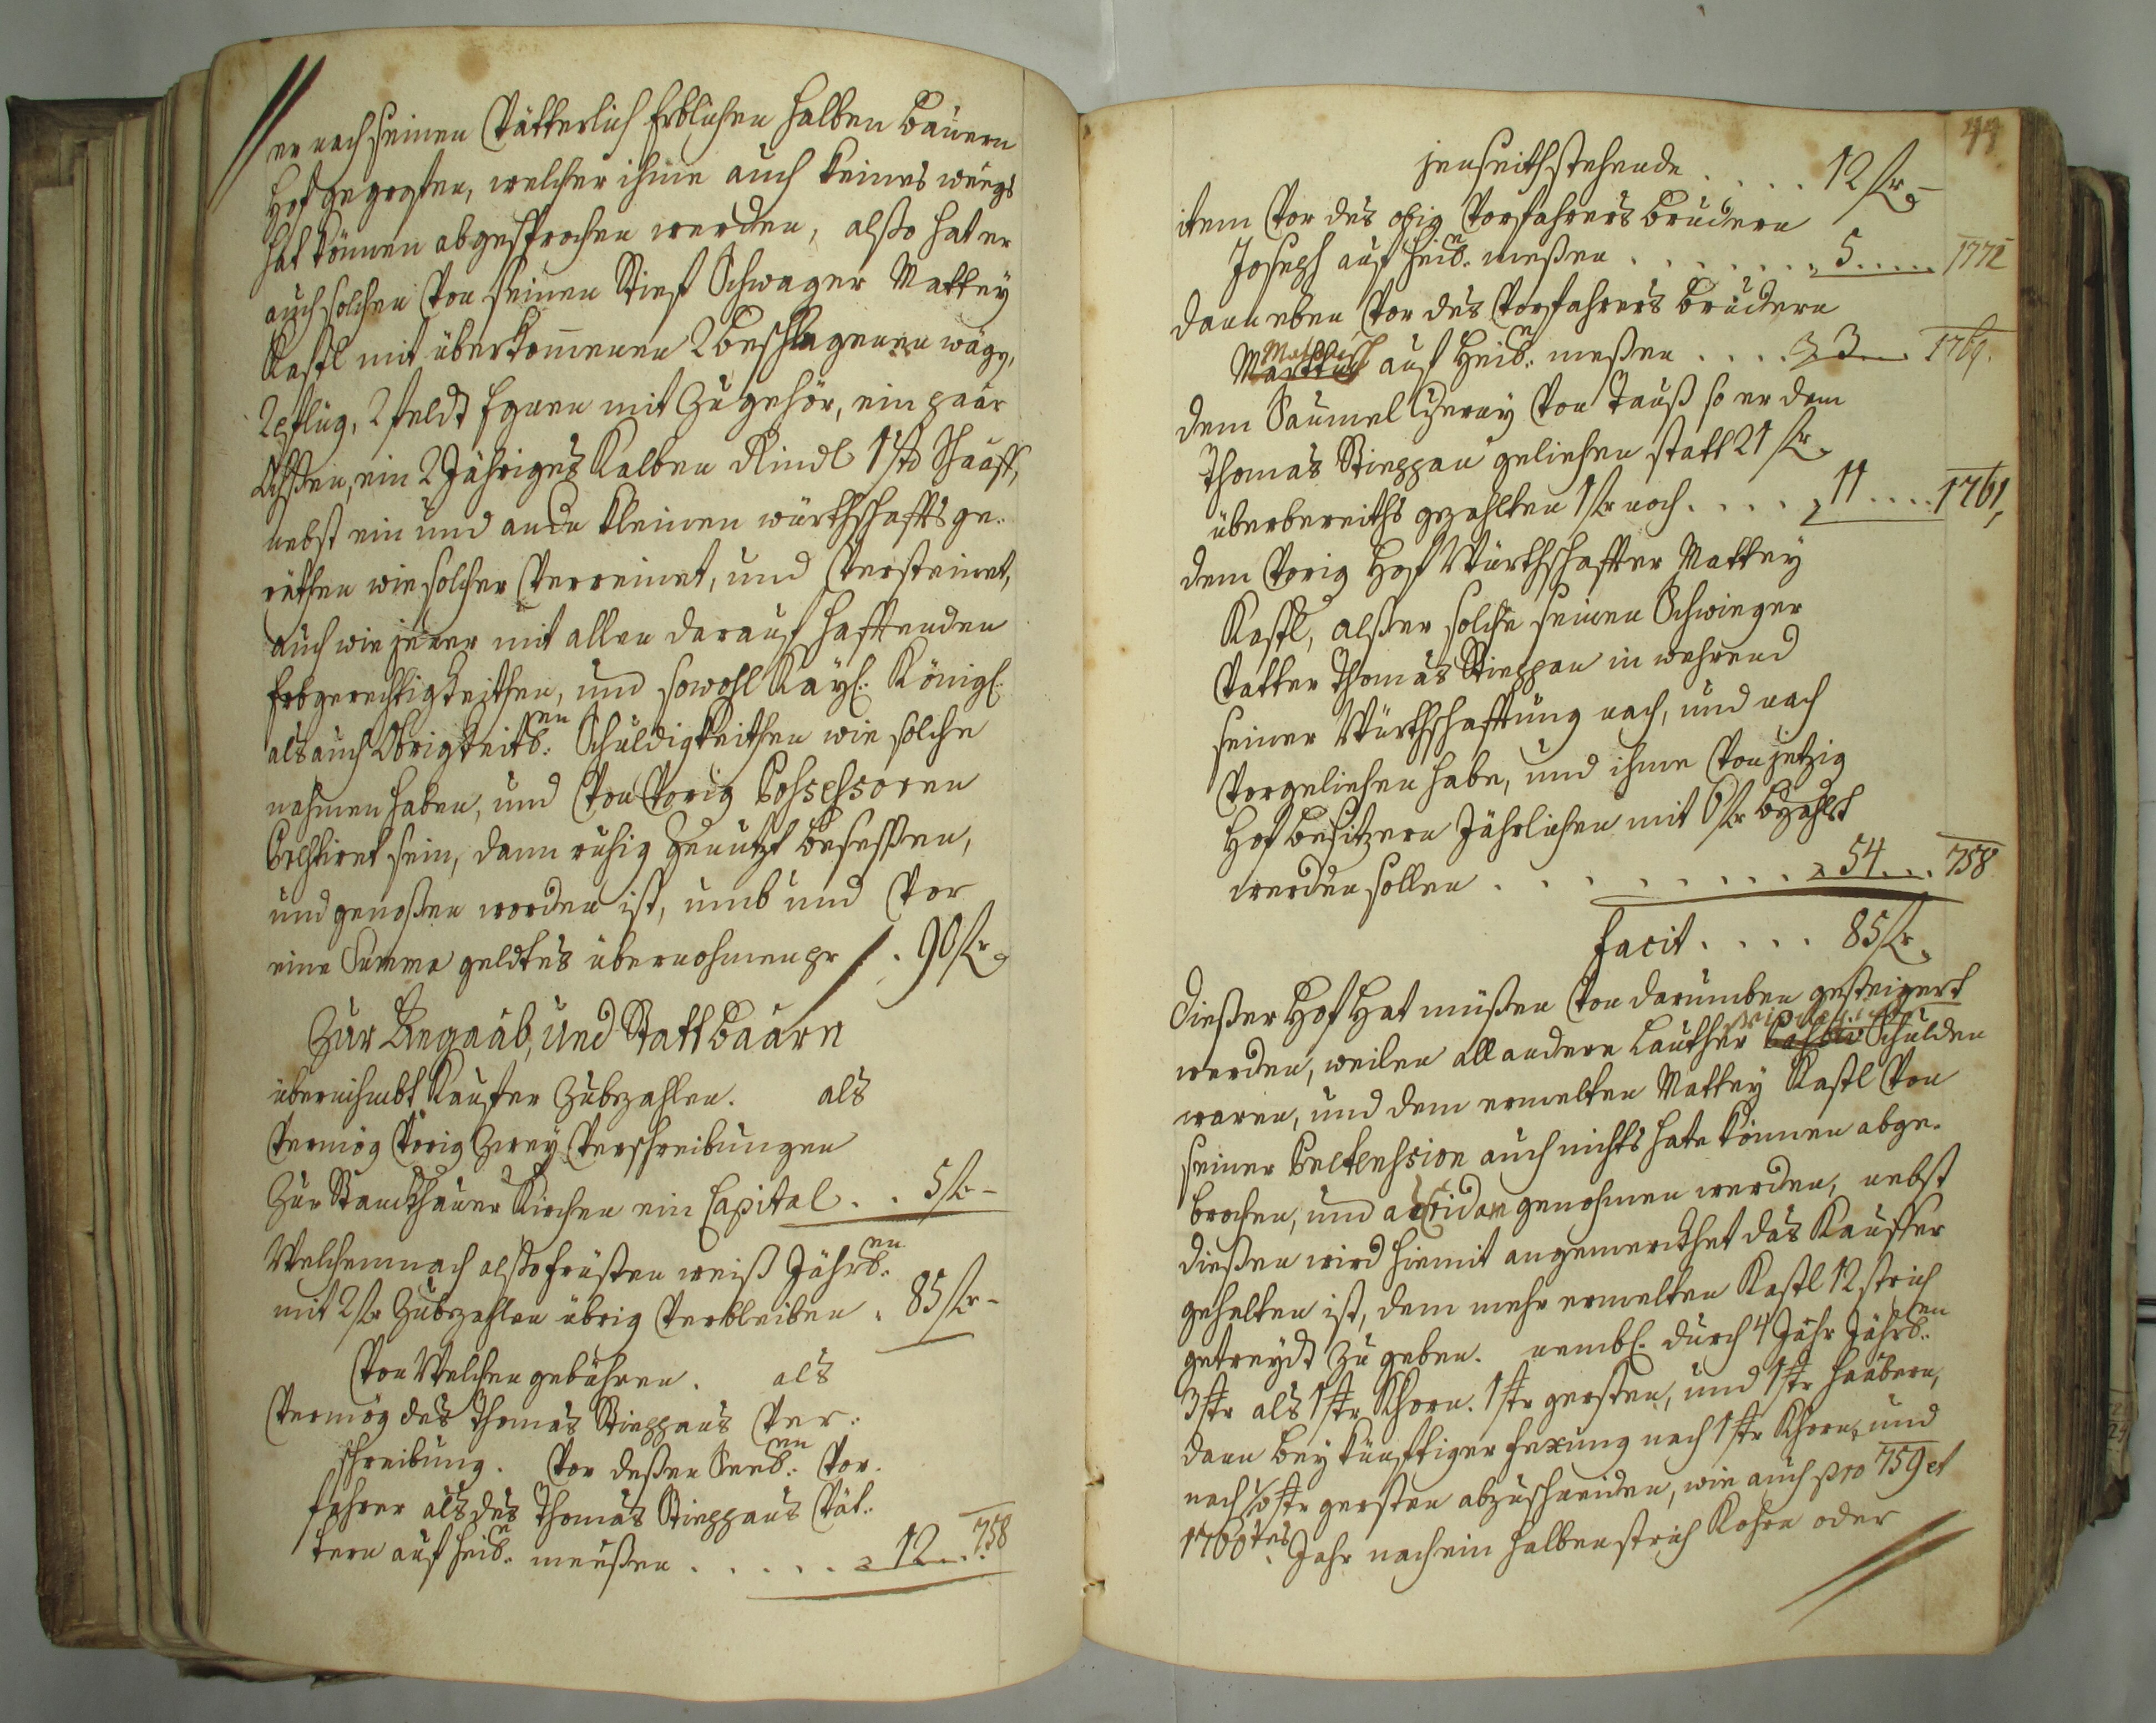 er nach seinen Vätterlich Erblichen halben Bauern
Hof gegrosten, welcher ihme auch keines weegs
hat können abgesprochen werden, alßo hat er
auch solchen Von seinen Stief Schwager Mathey
Kastl mit überkom̅enen 2 beschlagenen wägn,
2 pflug, 2 feldt Egnen mit Zugehör, ein paar
Ochßen, ein 2 Jähriges Kalben Rindl 1 Stk Schaaff,
nebst ein und and kleinen würthschaffts ge-
räthen wie solcher Verreinet, und Versteinet,
auch wie jener mit allen darauf hafftenden
Erbgerechtigkeithen, und sowohl Kayl: Königl:
als auch Obrigkeitl:en Schuldigkeithen wie solche
nahmen haben, und Von Vorig Possessoren
Possetiret sein, dann ruhig Genutzt besessen,
und genossen worden ist, umb und Vor
eine Summa geldtes übernohmen pr . 90 fl
Zur Angaab, und Statt Baarn
übernihmbt Kauffer Zubezahlen. als
Vermög Vorig Zwey Verschreibungen
Zur Stanckhauer Kirchen ein Capital . . 5 fl -
Welchemnach alßo fristen weiß Jährl:en
mit 2 fl Zubezahlen übrig Verbleiben . 85 fl -
Von Welchen gebühren. als
Vermög des Thomas Stieppans Ver-
schreibung. Vor dessen Seel:en Vor-
fahrer als des Thomas Stieppans Vät-
tern auf heil:n meußen . . . . . 12 . . 758
44
jenseithstehende . . . . 12 fl -
item Vor des obig Vorfahrers brudern
Joseph auf heil:n meßen . . . . . . . 5 . . . . 1772
dann eben Vor des Vorfahrers brudern
Mathes auf heil:n meßen . . . . 3 . . . 1769.
dem Samuel Zerny Von Tauß so er dem
Thomas Stieppan geliehen statt 21 fl
überbereiths gezahlten 1 fl noch . . . . 11 . . . . 1761,
dem Vorig Hof Würthschaffter Mathey
Kastl, alß er solche seinen Schwieger
Vatter Thomas Stieppan in wehrend
seiner Würthschafftung nach, und nach
Vorgeliehen habe, und ihme Von jetzig
Hof besitzern Jährlichen mit 6 fl bezahlt
werden sollen . . . . . . . . . . 54 . . . 758
Facit . . . . 85 fl
Dießer Hof Hat müßen Von darumben gesteigert
werden, weilen all andere Lauther Schulden
waren, und dem ermelten Mathey Kastl Von
seiner Prætension auch nichts hate können abge-
brochen, und genohmen werden, nebst
dießen wird hiemit angemerckhet das Kauffer
gehalten ist, dem mehr ermelten Kastl 12 strich
getreydt zu geben. nembl. durch 4 Jahr Jährl:en
3 str als 1 str Khorn. 1 str gersten, und 1 str haabern,
dann bey künfftiger fexung nach 1 str Khorn, und
nach ½ str gersten abzuschneiden, wie auch pro 759 et
1760tes Jahr nach ein halben strich Kohrn oder